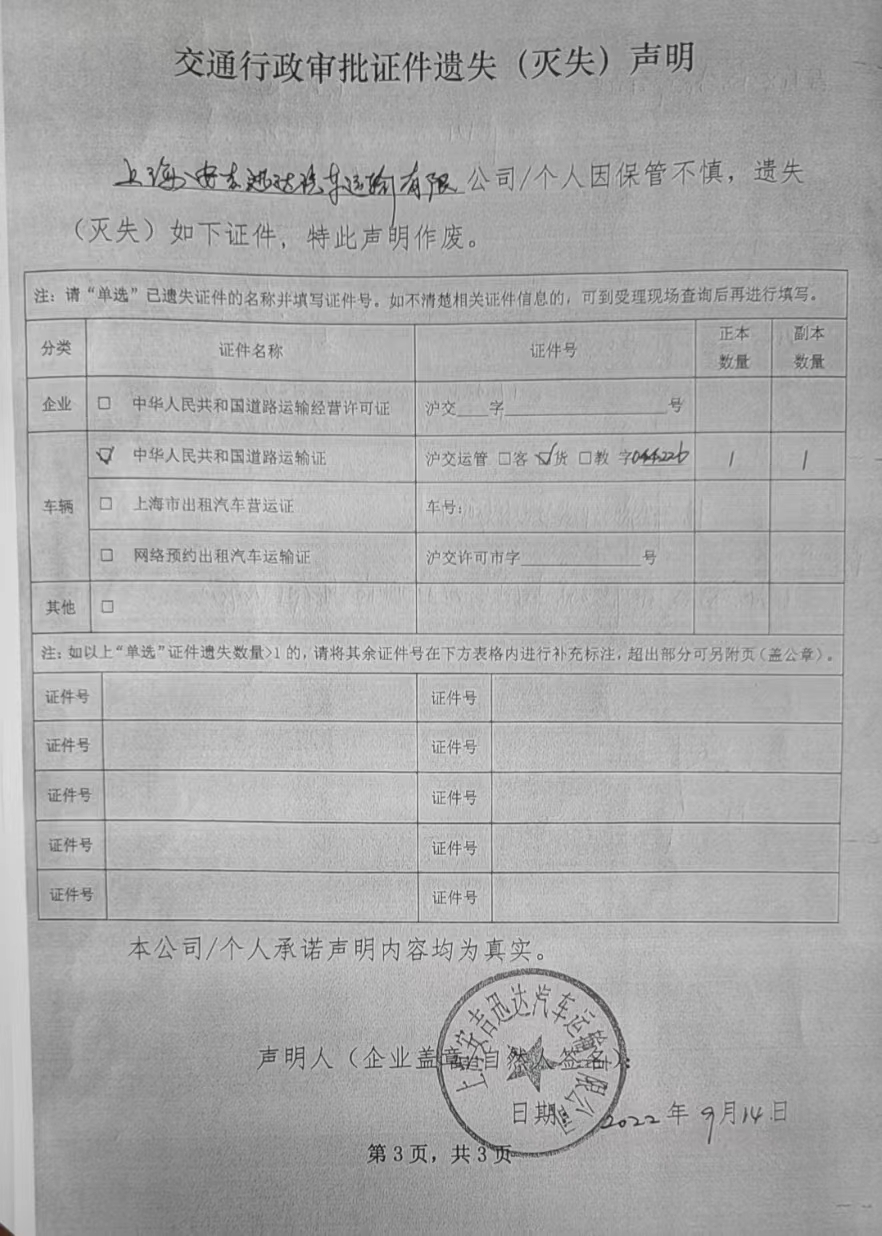 交通行政审批证件遗失（灭失）声明
上海安吉迅达汽车运输有限公司/个人因保管不慎，遗失
（灭失）如下证件，特此声明作废。
注：请“单选”已遗失证件的名称并填写证件号。如不清楚相关证件信息的，可到受理现场查询后再进行填写。
分类 证件名称 证件号 正本数量 副本数量
企业 □ 中华人民共和国道路运输经营许可证 沪交____字________________号
车辆 ☑ 中华人民共和国道路运输证 沪交运管 □客 ☑货 □教 字 1 1
□ 上海市出租汽车营运证 车号：
□ 网络预约出租汽车运输证 沪交许可市字____________号
其他 □
注：如以上“单选”证件遗失数量>1的，请将其余证件号在下方表格内进行补充标注，超出部分可另附页（盖公章）。
证件号 证件号
证件号 证件号
证件号 证件号
证件号 证件号
证件号 证件号
本公司/个人承诺声明内容均为真实。
上海安吉迅达汽车运输有限公司
声明人（企业盖章/自然人签名）：
日期：2022年9月14日
第3页，共3页